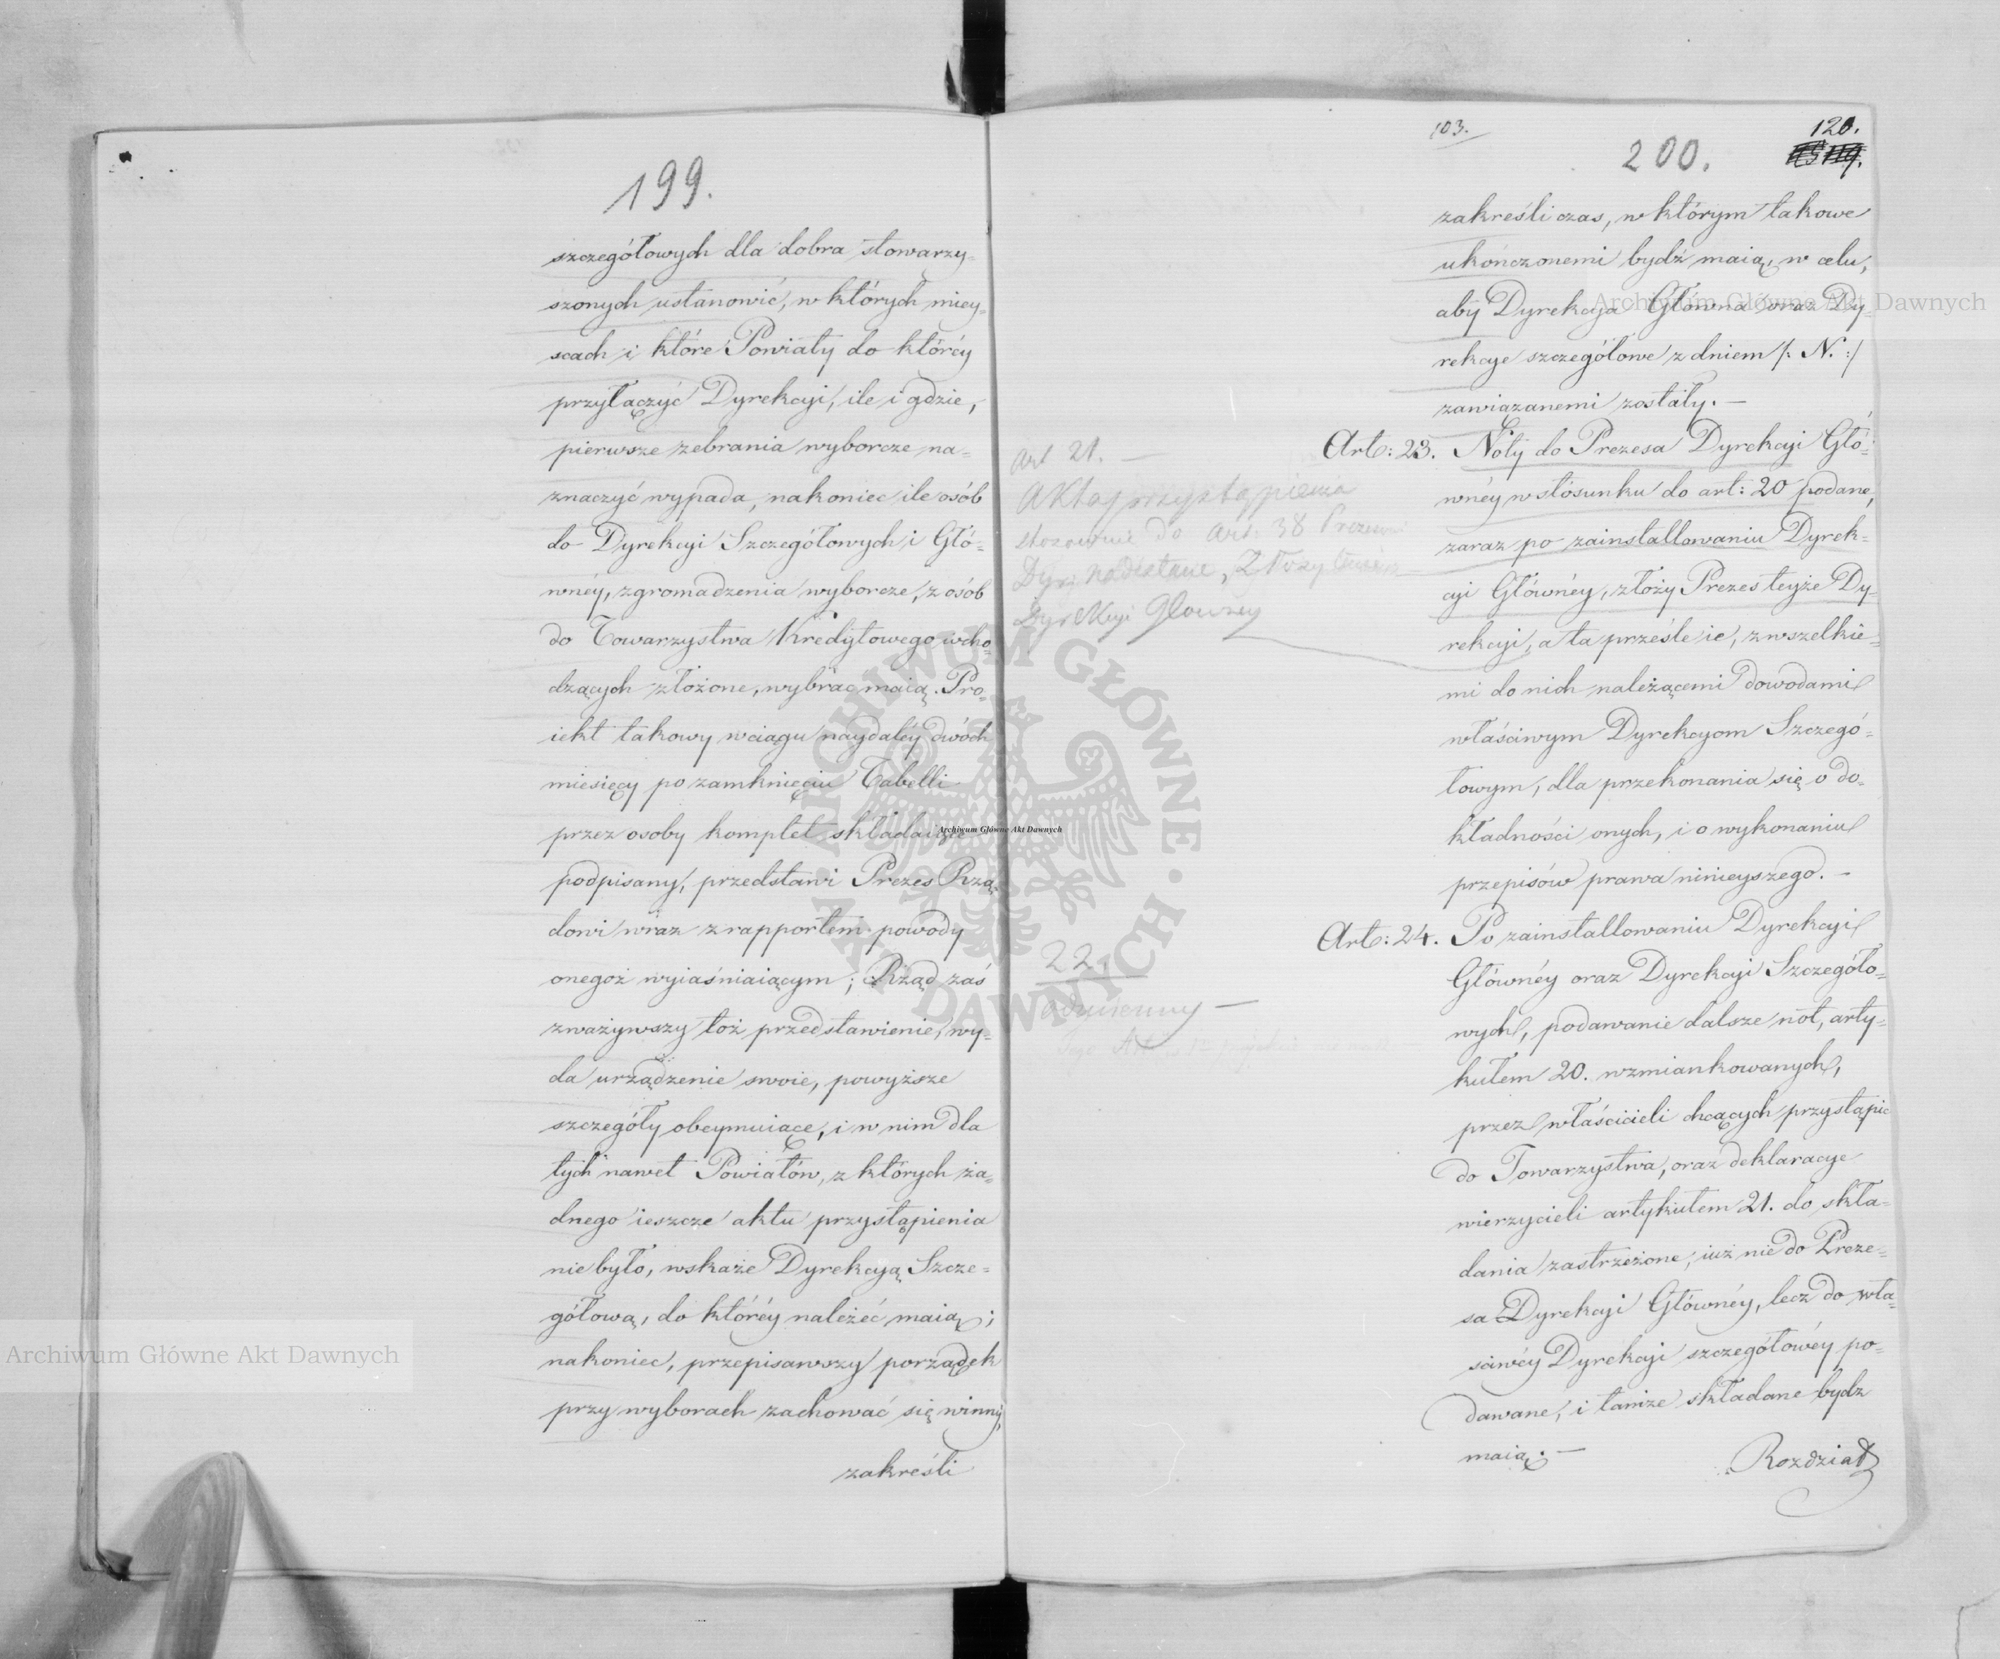 199.
szczegółowych dla dobra stowarzy-
szonych ustanowić, w których miey-
scach i które Powiaty do któréy
przyłączyć Dyrekcyi, ile i gdzie,
pierwsze zebrania wyborcze na-
znaczyć wypada, nakoniec ile osób
do Dyrekcyi Szczegółowych i Głó-
wnéy, zgromadzenia wyborcze, z osób
do Towarzystwa Kredytowego wcho-
dzących złożone, wybrac maią. Pro-
iekt takowy wciągu naydaléy dwóch
miesięcy po zamknięciu Tabelli
przez osoby komplet składaiące
podpisany, przedstawi Prezes Rzą-
dowi wraz z rapportem powody
onegoż wyiaśniaiącym; Rząd zaś
zważywszy toż przedstawienie, wy-
da urządzenie swoie, powyższe
szczegóły obeymuiące, i w nim dla
tych nawet Powiatów, z których ża-
dnego ieszcze aktu przystąpienia
nie było, wskaże Dyrekcyą Szcze-
gółową, do któréy należéć maią;
nakoniec, przepisawszy porządek
przy wyborach zachować się winny,
zakreśli
103.
120.
200.
zakreśli czas, w którym takowe
ukończonemi bydź maią, w celu,
aby Dyrekcya Główna oraz Dy-
rekcye szczegółowe z dniem /: N. :/
zawiązanemi zostały. —
Art: 23. Noty do Prezesa Dyrekcyi Głó-
wnéy w stósunku do art: 20 podane,
zaraz po zainstallowaniu Dyrek-
cyi Głównéy, złoży Prezes teyże Dy-
rekcyi, a ta prześle ie, z wszelkie-
mi do nich należącemi dowodami
właściwym Dyrekcyom Szczegó-
łowym, dla przekonania się o do-
kładności onych, i o wykonaniu
przepisów prawa ninieyszego. —
Art: 24. Po zainstallowaniu Dyrekcyi
Głównéy oraz Dyrekcyi Szczegóło-
wych, podawanie dalsze nót, arty-
kułem 20. wzmiankowanych,
przez właścicieli chcących przystąpic
do Towarzystwa, oraz deklaracye
wierzycieli artykułem 21. do skła-
dania zastrzeżone, iuż nie do Preze-
sa Dyrekcyi Głównéy, lecz do wła-
sciwéy Dyrekcyi szczegółowéy po-
dawane, i tamże składane bydz
maią. —
Rozdział
Art 21. —
Akta przystąpienia
stosownie do art. 38
nadesłane, złoży
Dyrekcyi Głowney
22.
odmienny —
Archiwum Główne Akt Dawnych
Archiwum Główne Akt Dawnych
Archiwum Główne Akt Dawnych
ARCHIWUM GŁÓWNE · AKT DAWNYCH ·